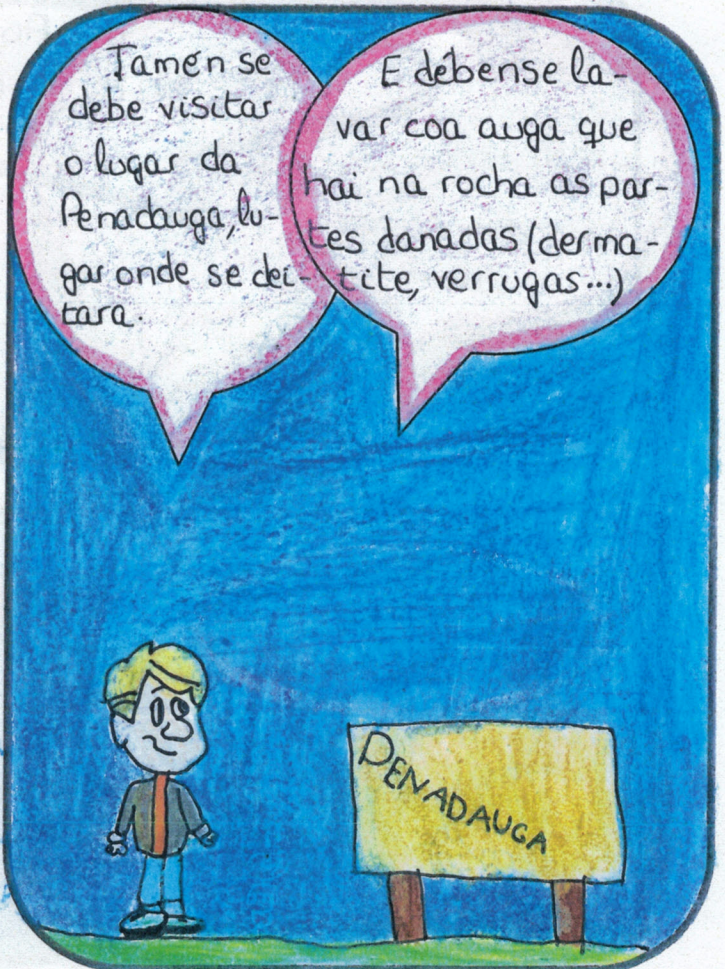 Tamén se
debe visitar
o lugar da
Penadauga, lu-
gar onde se dei-
tara.
E débense la-
var coa auga que
hai na rocha as par-
tes danadas (derma-
tite, verrugas...)
PENADAUGA